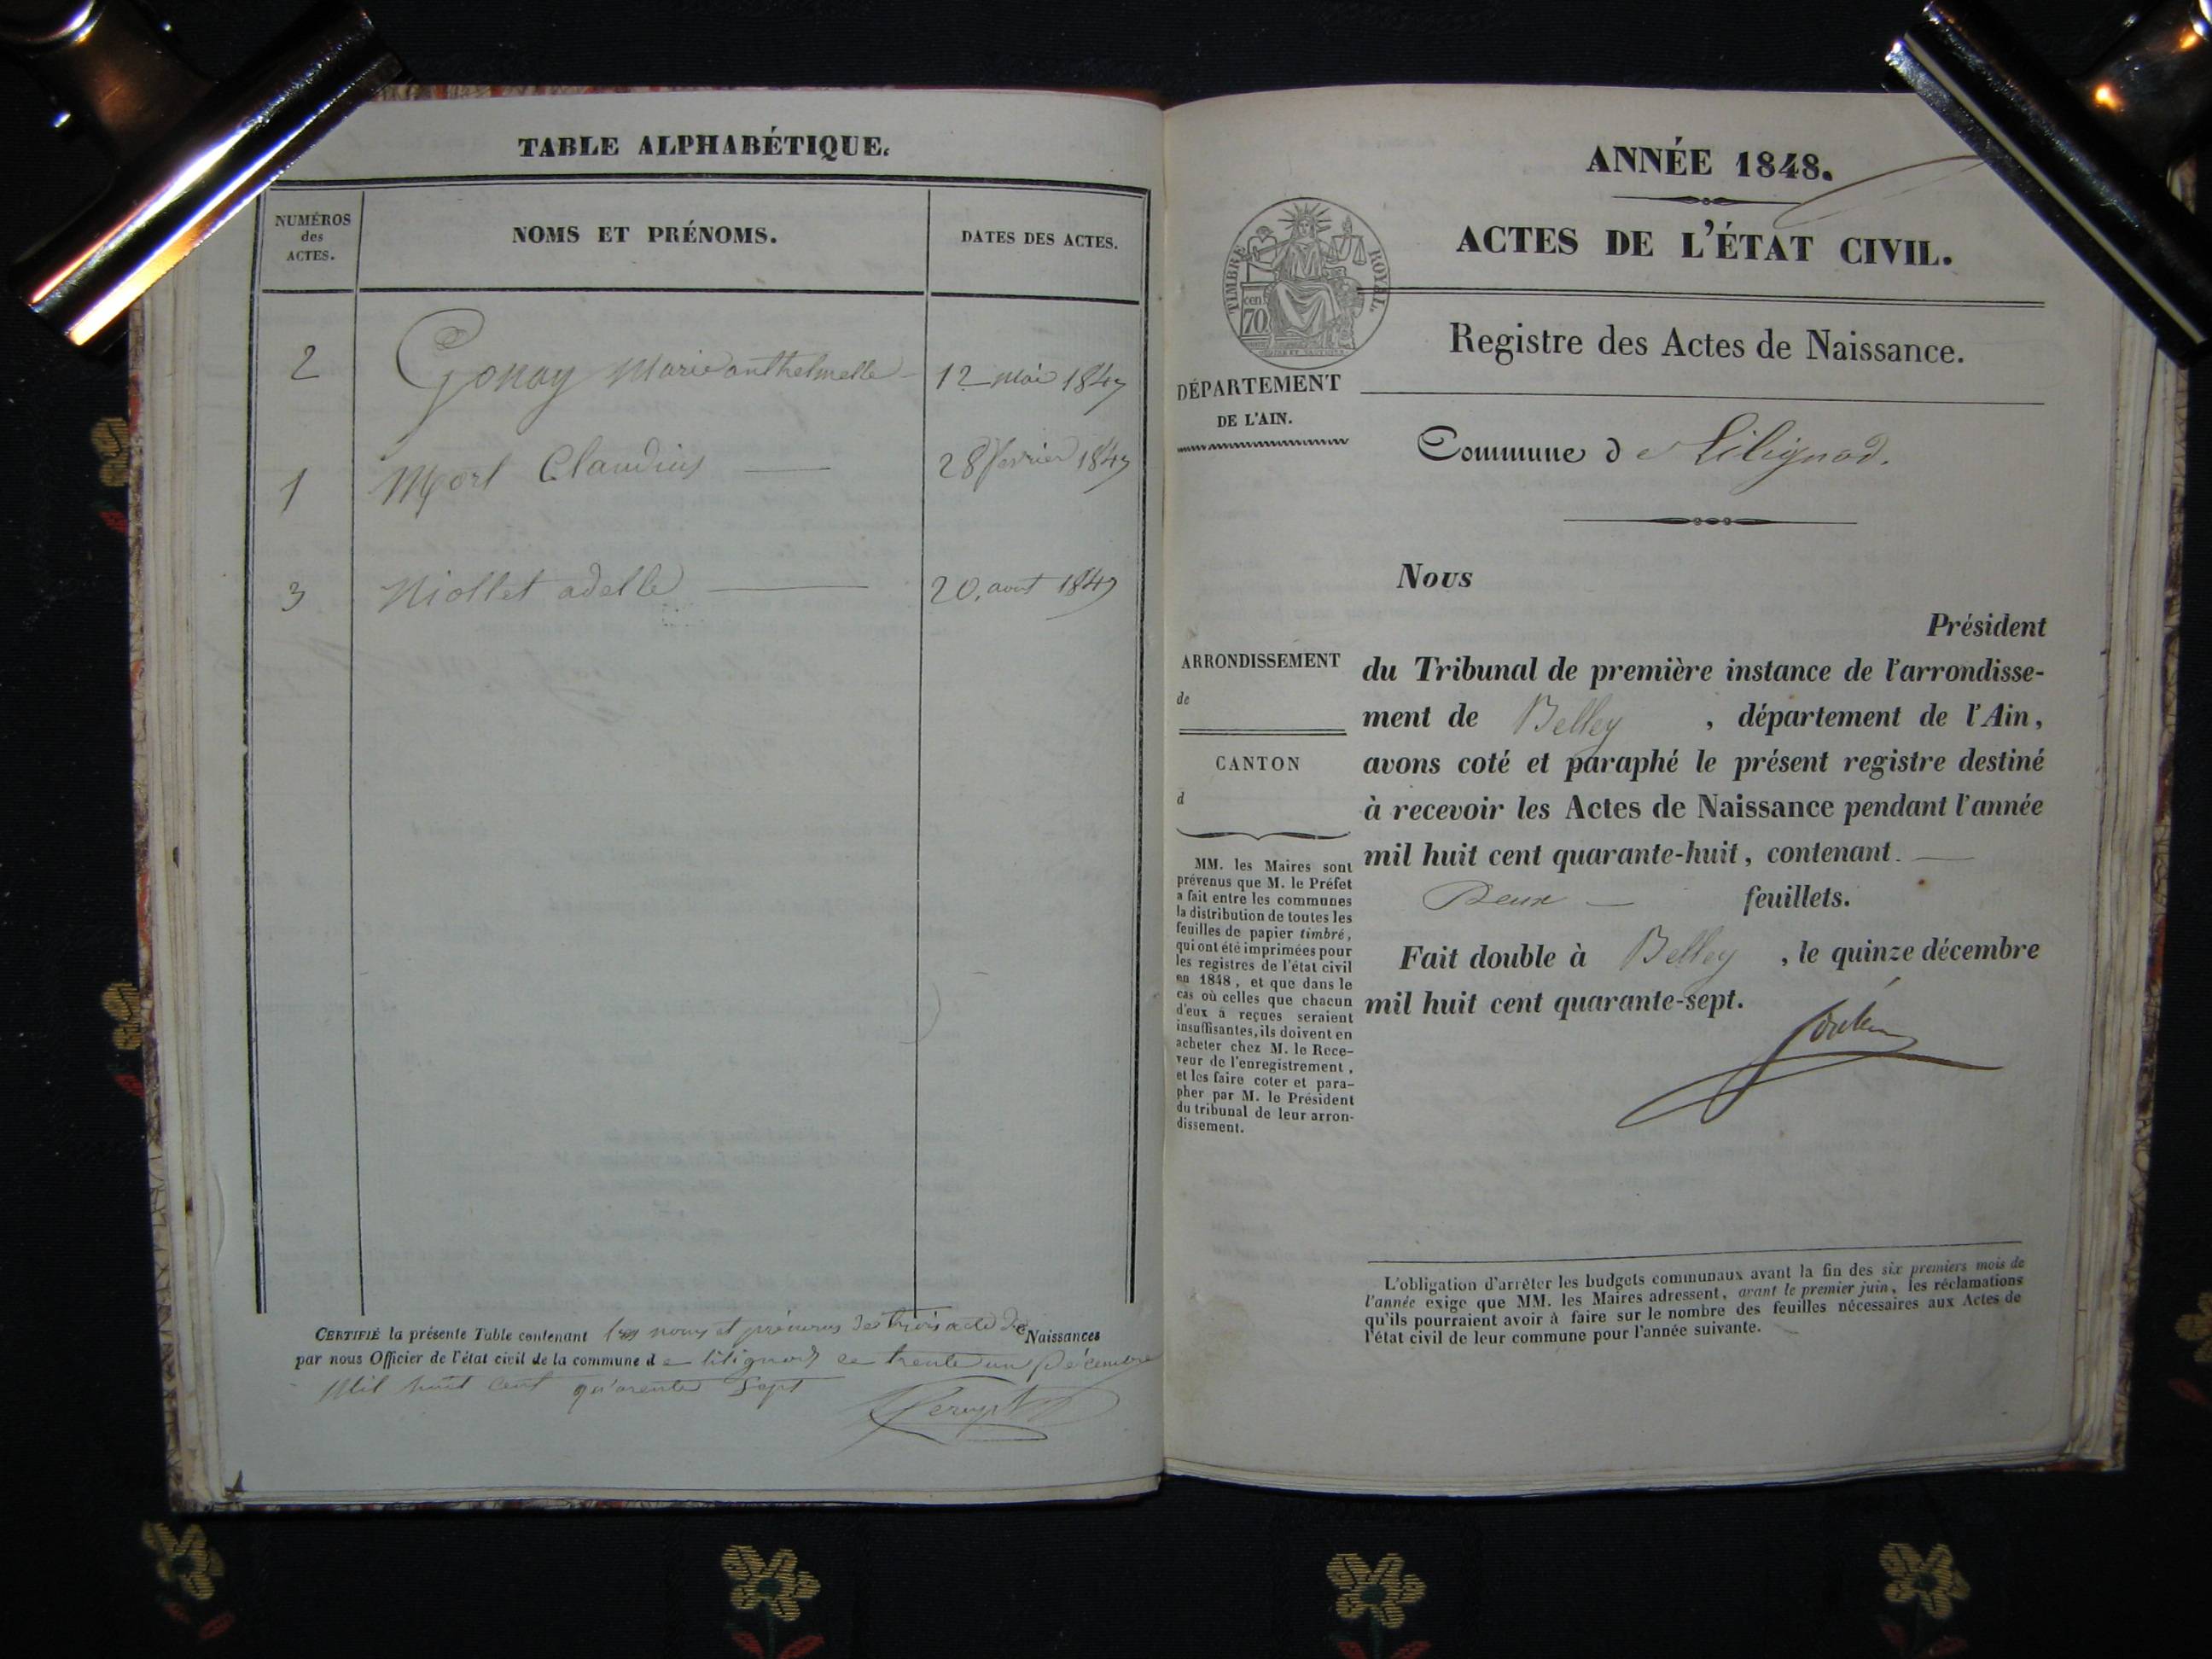 TABLE ALPHABÉTIQUE.
NUMÉROS
des
ACTES.
NOMS ET PRÉNOMS.
DATES DES ACTES.
2 Gonay Marie anthelmelle 12 mai 1847
1 Claudius 28 fevrier 1847
3 Niollet adelle 20, aout 1847
CERTIFIÉ la présente Table contenant les noms et prénoms des trois acte de Naissances
par nous Officier de l'état civil de la commune de lilignod ce trente un Décembre
Mil huit cent quarente Sept
ANNÉE 1848.
ACTES DE L'ÉTAT CIVIL.
TIMBRE ROYAL
cen
70
Registre des Actes de Naissance.
DÉPARTEMENT
DE L'AIN.
Commune de Lilignod.
Nous
Président
du Tribunal de première instance de l'arrondisse-
ment de Belley , département de l'Ain,
avons coté et paraphé le présent registre destiné
à recevoir les Actes de Naissance pendant l'année
mil huit cent quarante-huit, contenant
Deux feuillets.
Fait double à Belley , le quinze décembre
mil huit cent quarante-sept.
ARRONDISSEMENT
de
CANTON
d
MM. les Maires sont
prévenus que M. le Préfet
a fait entre les communes
la distribution de toutes les
feuilles de papier timbré,
qui ont été imprimées pour
les registres de l'état civil
en 1848, et que dans le
cas où celles que chacun
d'eux a reçues seraient
insuffisantes, ils doivent en
acheter chez M. le Rece-
veur de l'enregistrement,
et les faire coter et para-
pher par M. le Président
du tribunal de leur arron-
dissement.
L'obligation d'arrêter les budgets communaux avant la fin des six premiers mois de
l'année exige que MM. les Maires adressent, avant le premier juin, les réclamations
qu'ils pourraient avoir à faire sur le nombre des feuilles nécessaires aux Actes de
l'état civil de leur commune pour l'année suivante.